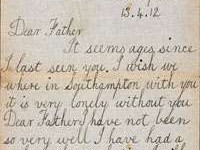 13.4.12
Dear Father
It seems ages since
I last seen you. I wish we
where in Southampton with you
it is very lonely without you
Dear Father I have not been
so very well I have had a